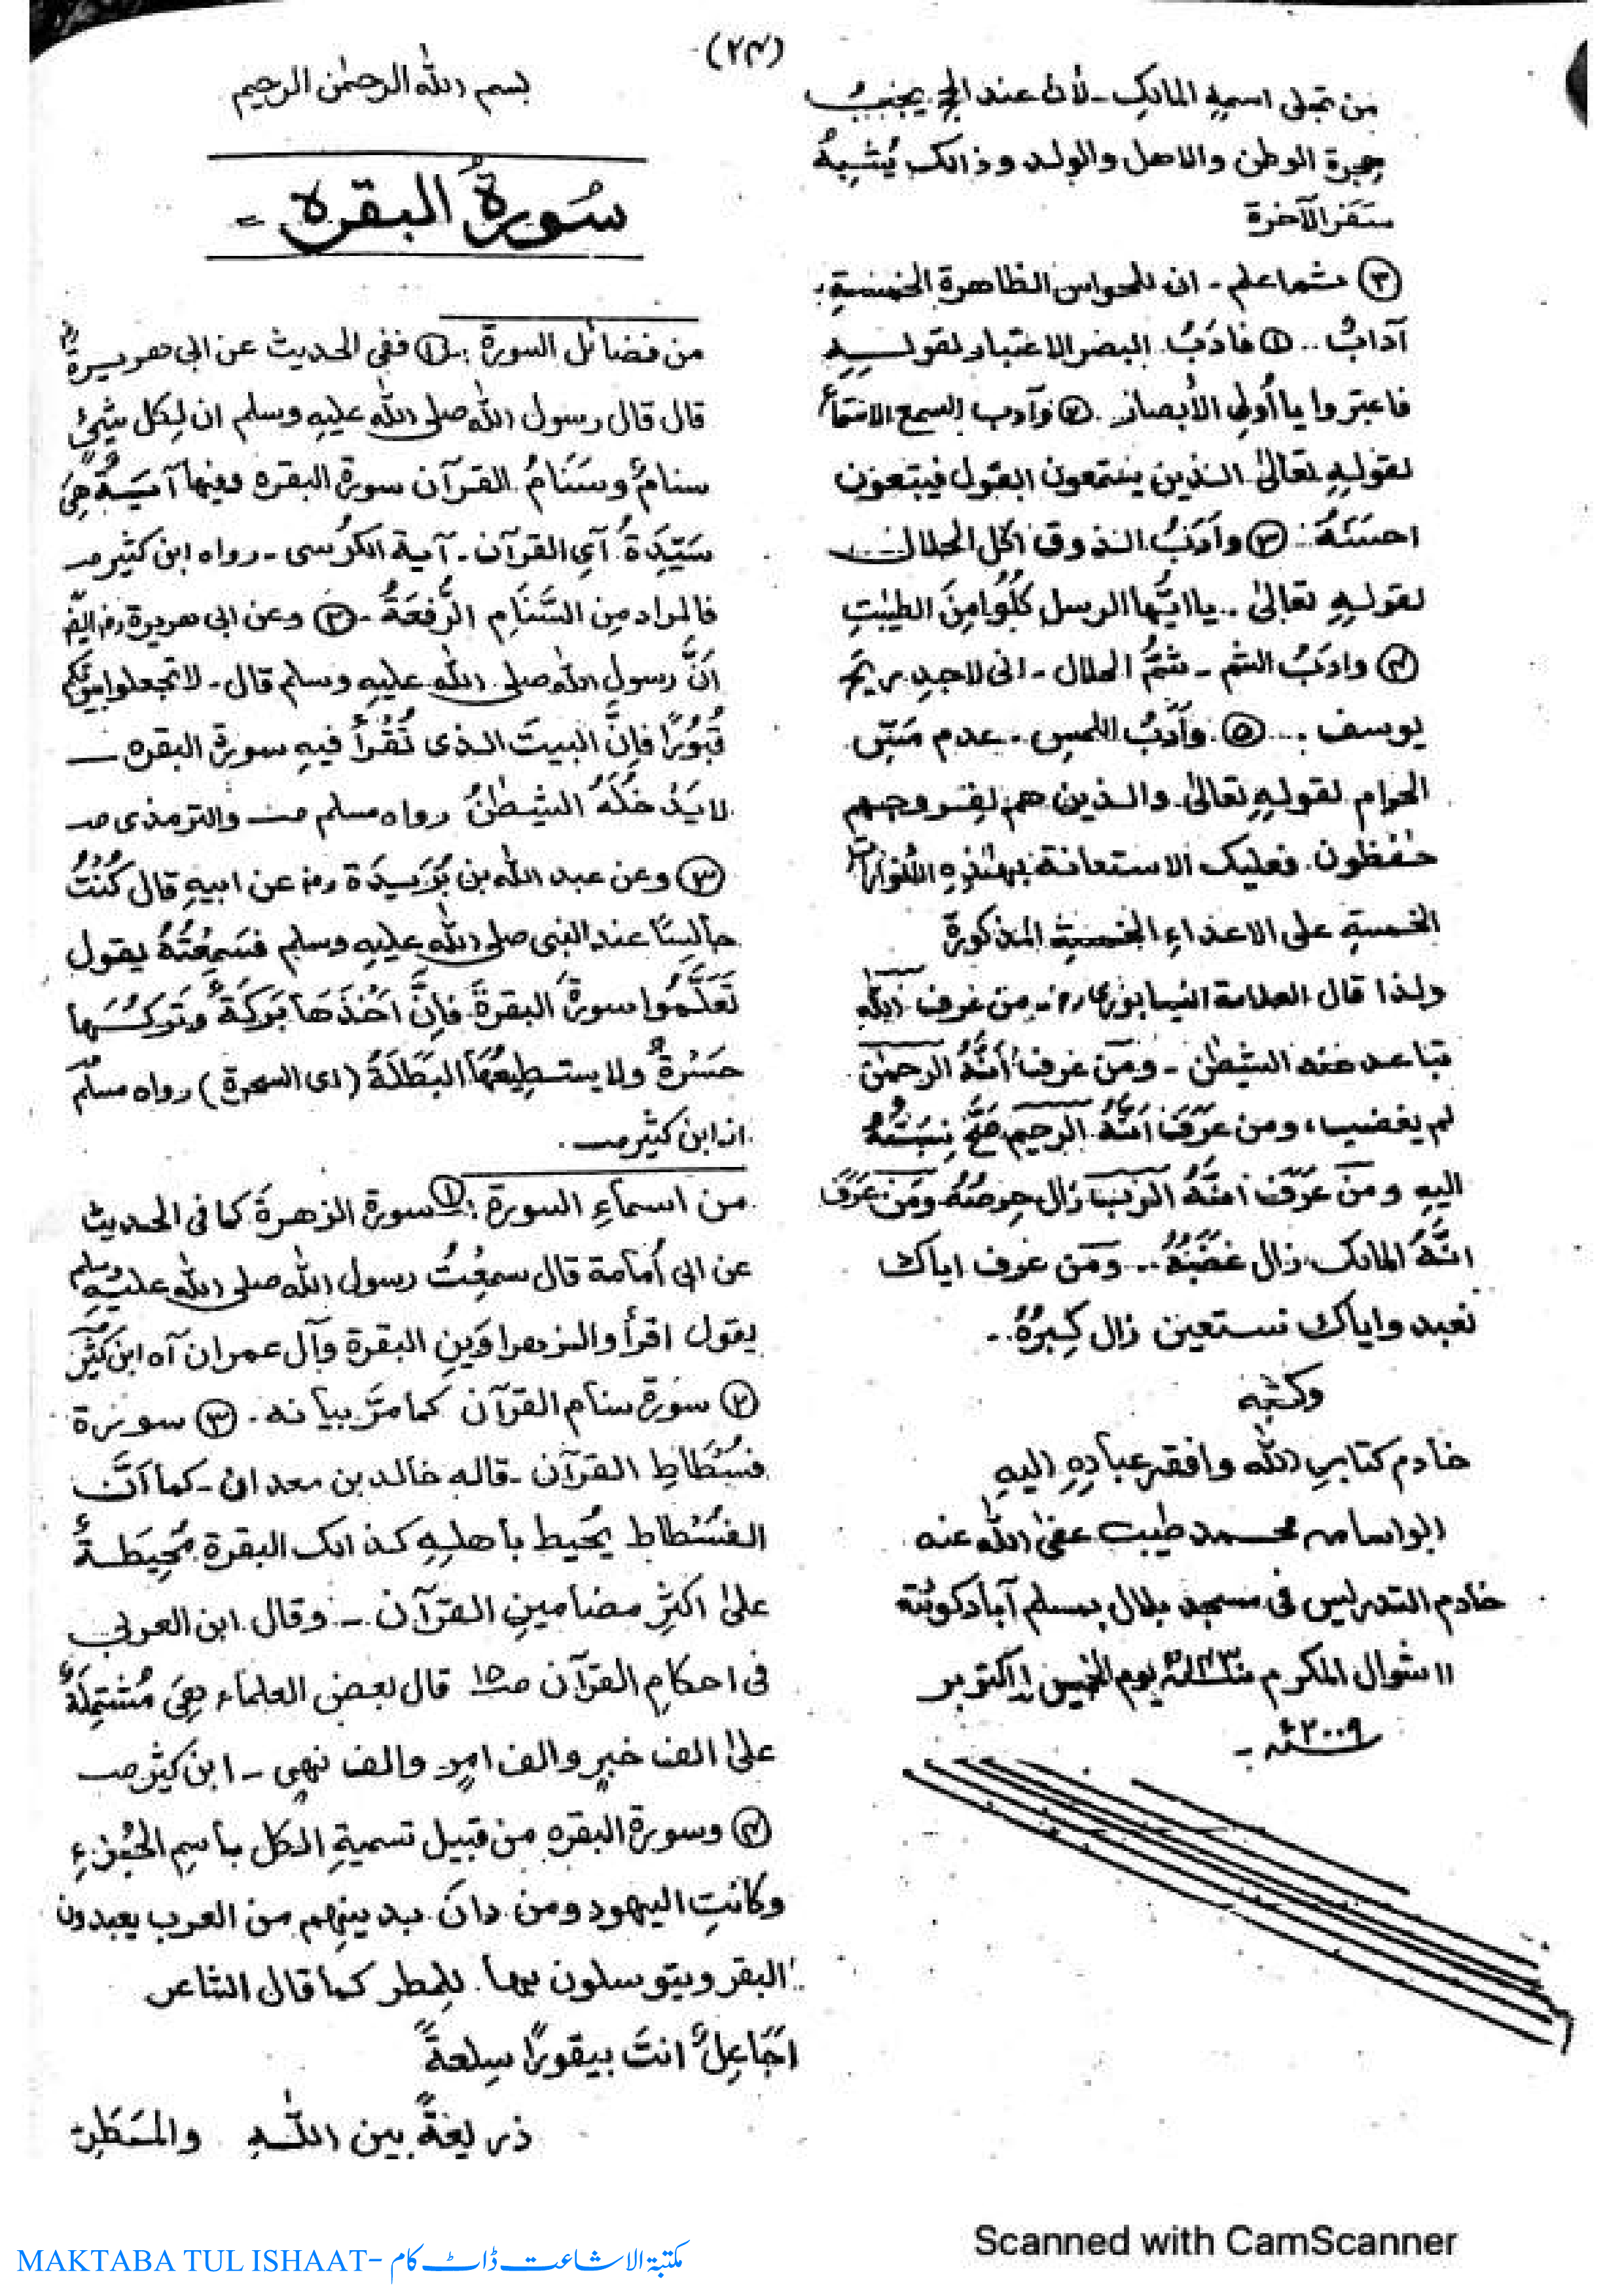 (٢٤)
من تجلى اسمهِ المالكِ ـ لأن عند الحج يجبُ
هجرة الوطن والاهل والولد وذالك يُشبِهُ
سَفَر الآخرة
③ ثم اعلم ـ ان للحواس الظاهرة الخمسةِ
آدابٌ .. ① فادَبُ البصر الاعتبار لقولهِ
فاعتبروا يا أولى الأبصار . ② وآدب السمع الاستماع
لقولهِ تعالىٰ الذين يستمعون القول فيتبعون
احسنَهُ .. ③ وأدَبُ الذوق اكل الحلال
لقولهِ تعالىٰ .. يا ايُّها الرسل كُلُوا مِنَ الطيبٰتِ
④ وادَبُ الشم ـ شَمُّ الحلال ـ انى لاجد ريح
يوسف ... ⑤ وأدَبُ اللمسِ ـ عدم مَسِّ
الحرام لقولهِ تعالىٰ والذين هم لفروجهم
حٰفظون فعليك الاستعانة بهٰذِهِ
الخمسةِ على الاعداءِ الخمسةِ المذكورة
ولذا قال العلامة النيسابورى رح ـ من عرف الله
تباعد عنه الشيطٰن ـ ومَن عرف أنَّهُ الرحمٰن
لم يغضب، ومن عَرَفَ أنَّهُ الرحيم صَحَّ نِسبَتُهُ
اليهِ ومَن عَرَفَ أنَّهُ الرَب زال حِرصُهُ ومَن عَرَفَ
انَّهُ المالك زال غضَبُهُ .. ومَن عرف اياك
نعبد واياك نستعين زال كِبرُهُ ..
وكتبه
خادم كتابِ الله وافقر عبادِهِ اليهِ
ابو اسامه محمد طيب عفى الله عنه
خادم التدريس فى مسجد بلال بسلم آباد كوئٹه
١١ شوال المكرم ١٤٣٠ يوم الخميس ١ اكتوبر
٢٠٠٩ء ـ
بسم الله الرحمٰن الرحيم
سُورةُ البقره ـ
من فضائل السورة : ① ففى الحديث عن ابى هريرة رض
قال قال رسول الله صلى الله عليهِ وسلم ان لِكل شَئٍ
سنامٌ وسَنَامُ القرآن سورة البقره وفيها آيَةٌ هِىَ
سَيِّدَةُ آىِ القرآن ـ آية الكرُسى ـ رواه ابن كثير صـ
فالمراد مِن السَّنَامِ الرِّفعَةُ ـ ② وعن ابى هريرة رض ايضًا
اَنَّ رسول الله صلى الله عليهِ وسلم قال ـ لا تجعلوا بيوتكم
قُبُورًا فاِنَّ البيتَ الذى تُقْرَأُ فيهِ سورة البقره
لا يَدْخُلُهُ الشيطٰنُ رواه مسلم صـ والترمذى صـ
③ وعن عبد الله بن بُرَيدَة رض عن ابيهِ قال كُنْتُ
جالِسًا عند النبى صلى الله عليهِ وسلم فسَمِعْتُهُ يقول
تَعَلَّمُوا سورةَ البقرة فاِنَّ اَخْذَهَا بَرَكَةٌ وتَركَها
حَسْرَةٌ ولا يستطِيعُهَا البَطَلَةُ (اى السحرة) رواه مسلم
از ابن كثير صـ .
من اسماءِ السورة : ① سورة الزهرةَ كما فى الحديث
عن ابى أُمامة قال سمِعْتُ رسول الله صلى الله عليهِ وسلم
يقول اقرأ والزهراوَينِ البقرة وآل عمران آه ابن كثير
② سورة سنام القرآن كما مرَّ بيانه ـ ③ سورة
فُسْطَاطِ القرآن ـ قاله خالد بن معدان ـ كما اَنَّ
الفُسْطاط يُحيط بأهلهِ كذالك البقرة مُحِيطَةٌ
علىٰ اكثرِ مضامينِ القرآن ـ وقال ابن العربى
فى احكامِ القرآن صـ١٥ قال بعض العلماء هِىَ مُشتَمِلَةٌ
علىٰ الف خبرٍ والف امرٍ والف نهىٍ ـ ابن كثير صـ
④ وسورة البقره من قبيل تسميةِ الكل باسمِ الجُزءِ
وكانتِ اليهود ومن دانَ بدينِهم من العرب يعبدون
البقر ويتوسلون بها للمطر كما قال الشاعر
اَجَاعِلٌ انتَ بيقورًا سِلعةً
ذريعةً بين اللهِ والمَطَرِ
Scanned with CamScanner
MAKTABA TUL ISHAAT- مکتبۃ الاشاعت ڈاٹ کام